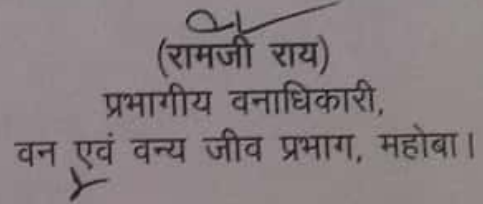 (रामजी राय)
प्रभागीय वनाधिकारी,
वन एवं वन्य जीव प्रभाग, महोबा।